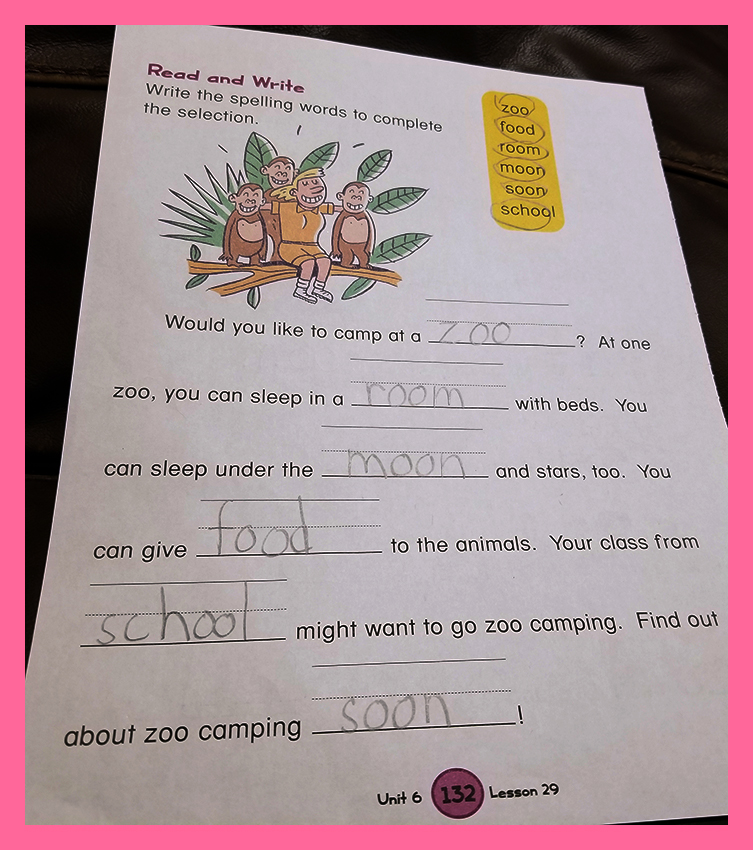 Read and Write
Write the spelling words to complete
the selection.
zoo
food
room
moon
soon
school
Would you like to camp at a zoo ? At one
zoo, you can sleep in a room with beds. You
can sleep under the moon and stars, too. You
can give food to the animals. Your class from
school might want to go zoo camping. Find out
about zoo camping soon !
Unit 6 132 Lesson 29